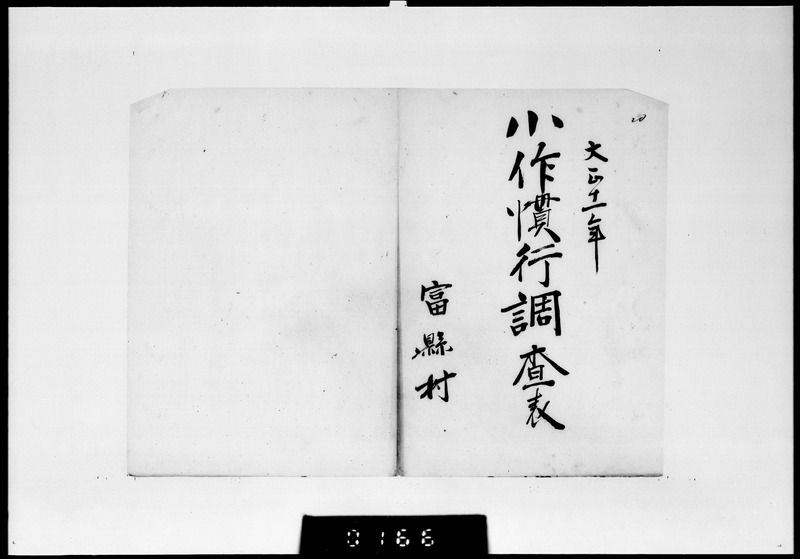 大正十一年
小作慣行調査表
富縣村
0166